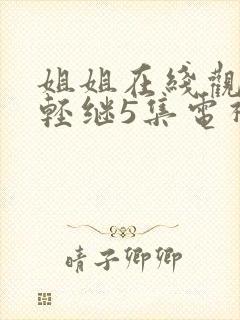 姐姐在綫觀
輕继5集電
晴子卿卿